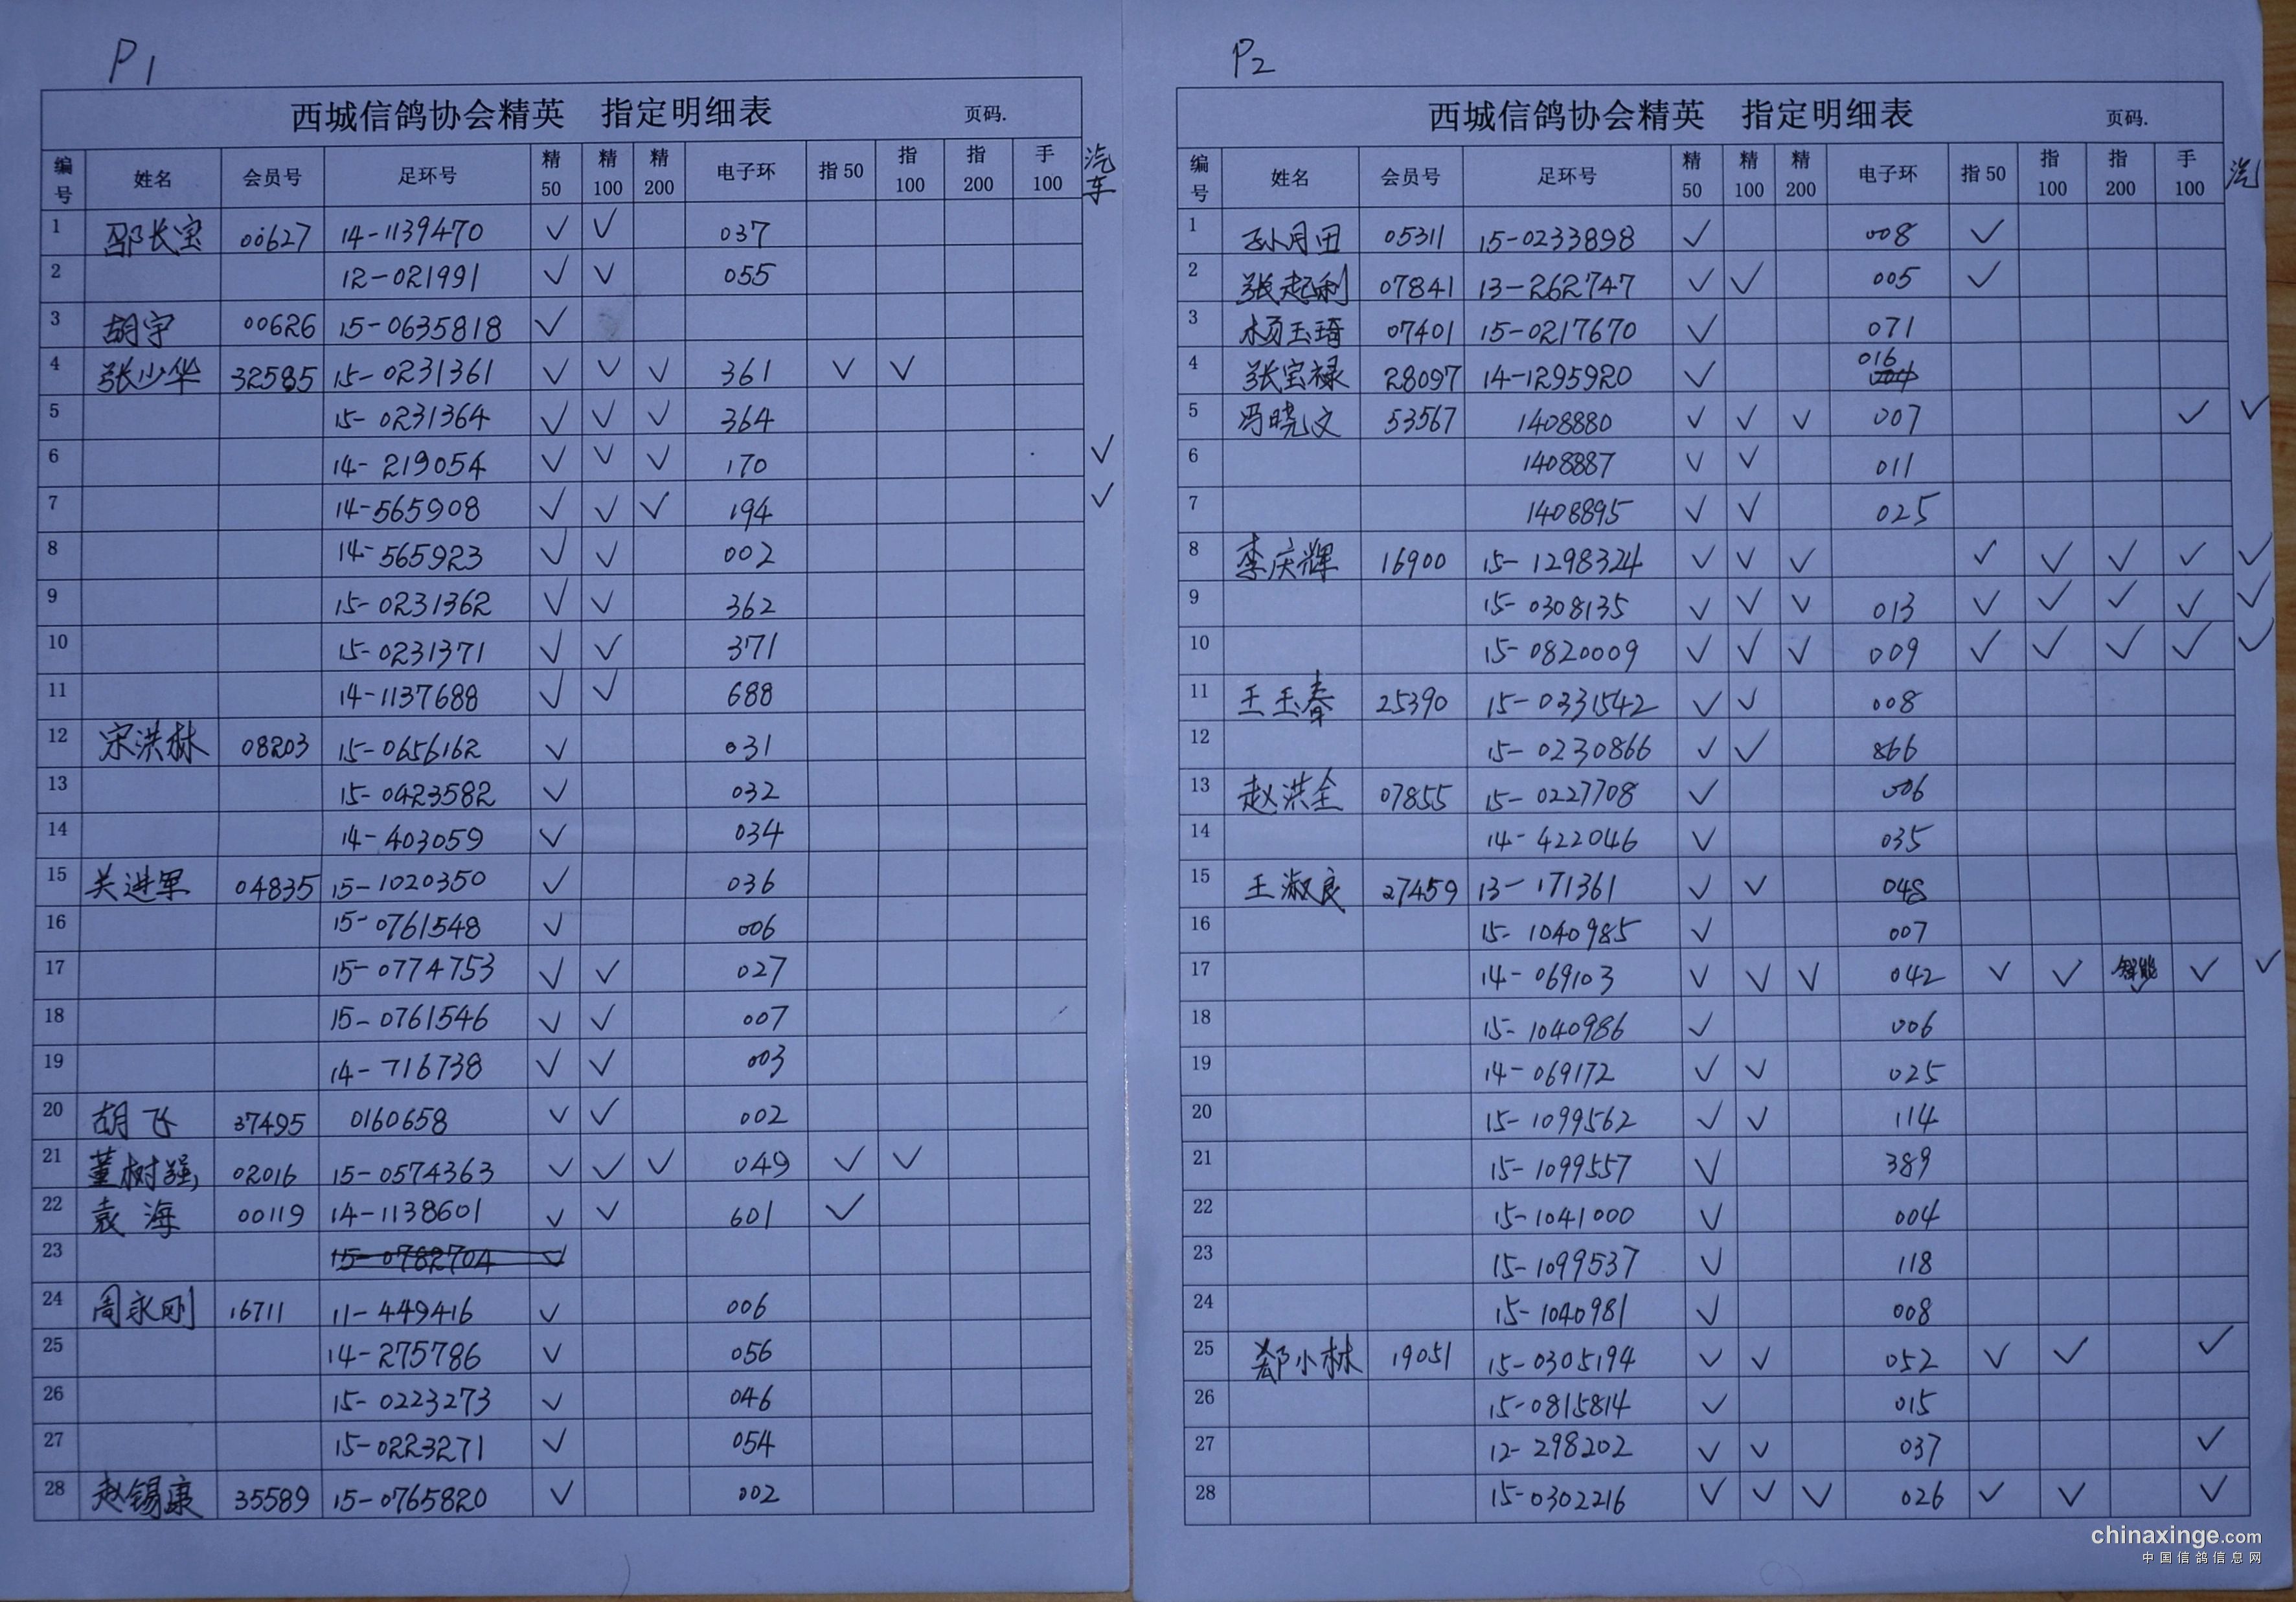 P1
西城信鸽协会精英 指定明细表 页码.
编号 姓名 会员号 足环号 精50 精100 精200 电子环 指50 指100 指200 手100 汽车
1 邵长宝 00627 14-1139470 ✓ ✓ 037
2 12-021991 ✓ ✓ 055
3 胡宇 00626 15-0635818 ✓
4 张少华 32585 15-0231361 ✓ ✓ ✓ 361 ✓ ✓
5 15-0231364 ✓ ✓ ✓ 364
6 14-219054 ✓ ✓ ✓ 170 ✓
7 14-565908 ✓ ✓ ✓ 194 ✓
8 14-565923 ✓ ✓ 002
9 15-0231362 ✓ ✓ 362
10 15-0231371 ✓ ✓ 371
11 14-1137688 ✓ ✓ 688
12 宋洪林 08203 15-0656162 ✓ 031
13 15-0423582 ✓ 032
14 14-403059 ✓ 034
15 关进军 04835 15-1020350 ✓ 036
16 15-0761548 ✓ 006
17 15-0774753 ✓ ✓ 027
18 15-0761546 ✓ ✓ 007
19 14-716738 ✓ ✓ 003
20 胡飞 37495 0160658 ✓ ✓ 002
21 董树强 02016 15-0574363 ✓ ✓ ✓ 049 ✓ ✓
22 袁海 00119 14-1138601 ✓ ✓ 601 ✓
23 15-0782704 ✓
24 周永刚 16711 11-449416 ✓ 006
25 14-275786 ✓ 056
26 15-0223273 ✓ 046
27 15-0223271 ✓ 054
28 赵锡康 35589 15-0765820 ✓ 002
P2
西城信鸽协会精英 指定明细表 页码.
编号 姓名 会员号 足环号 精50 精100 精200 电子环 指50 指100 指200 手100 汽
1 孙月田 05311 15-0233898 ✓ 008 ✓
2 张起利 07841 13-262747 ✓ ✓ 005 ✓
3 杨玉琦 07401 15-0217670 ✓ 071
4 张宝禄 28097 14-1295920 ✓ 016
5 冯晓文 53567 1408880 ✓ ✓ ✓ 007 ✓ ✓
6 1408887 ✓ ✓ 011
7 1408895 ✓ ✓ 025
8 李庆辉 16900 15-1298324 ✓ ✓ ✓ ✓ ✓ ✓ ✓ ✓
9 15-0308135 ✓ ✓ ✓ 013 ✓ ✓ ✓ ✓ ✓
10 15-0820009 ✓ ✓ ✓ 009 ✓ ✓ ✓ ✓ ✓
11 王玉春 25390 15-0331542 ✓ ✓ 008
12 15-0230866 ✓ ✓ 866
13 赵洪全 07855 15-0227708 ✓ 006
14 14-422046 ✓ 035
15 王淑良 27459 13-171361 ✓ ✓ 048
16 15-1040985 ✓ 007
17 14-069103 ✓ ✓ ✓ 042 ✓ ✓ ✓ ✓ ✓
18 15-1040986 ✓ 006
19 14-069172 ✓ ✓ 025
20 15-1099562 ✓ ✓ 114
21 15-1099557 ✓ 389
22 15-1041000 ✓ 004
23 15-1099537 ✓ 118
24 15-1040981 ✓ 008
25 郄小林 19051 15-0305194 ✓ ✓ 052 ✓ ✓ ✓
26 15-0815814 ✓ 015
27 12-298202 ✓ ✓ 037 ✓
28 15-0302216 ✓ ✓ ✓ 026 ✓ ✓ ✓
chinaxinge.com
中国信鸽信息网